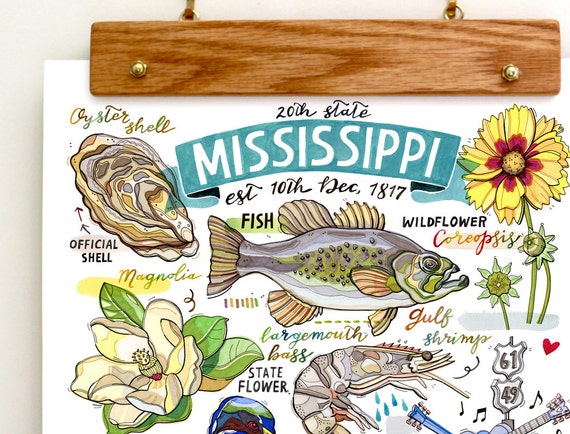 20th state
MISSISSIPPI
est 10th Dec, 1817
Oyster
shell
OFFICIAL
SHELL
FISH
WILDFLOWER
Coreopsis
Magnolia
largemouth
bass
gulf
shrimp
STATE
FLOWER
61
49